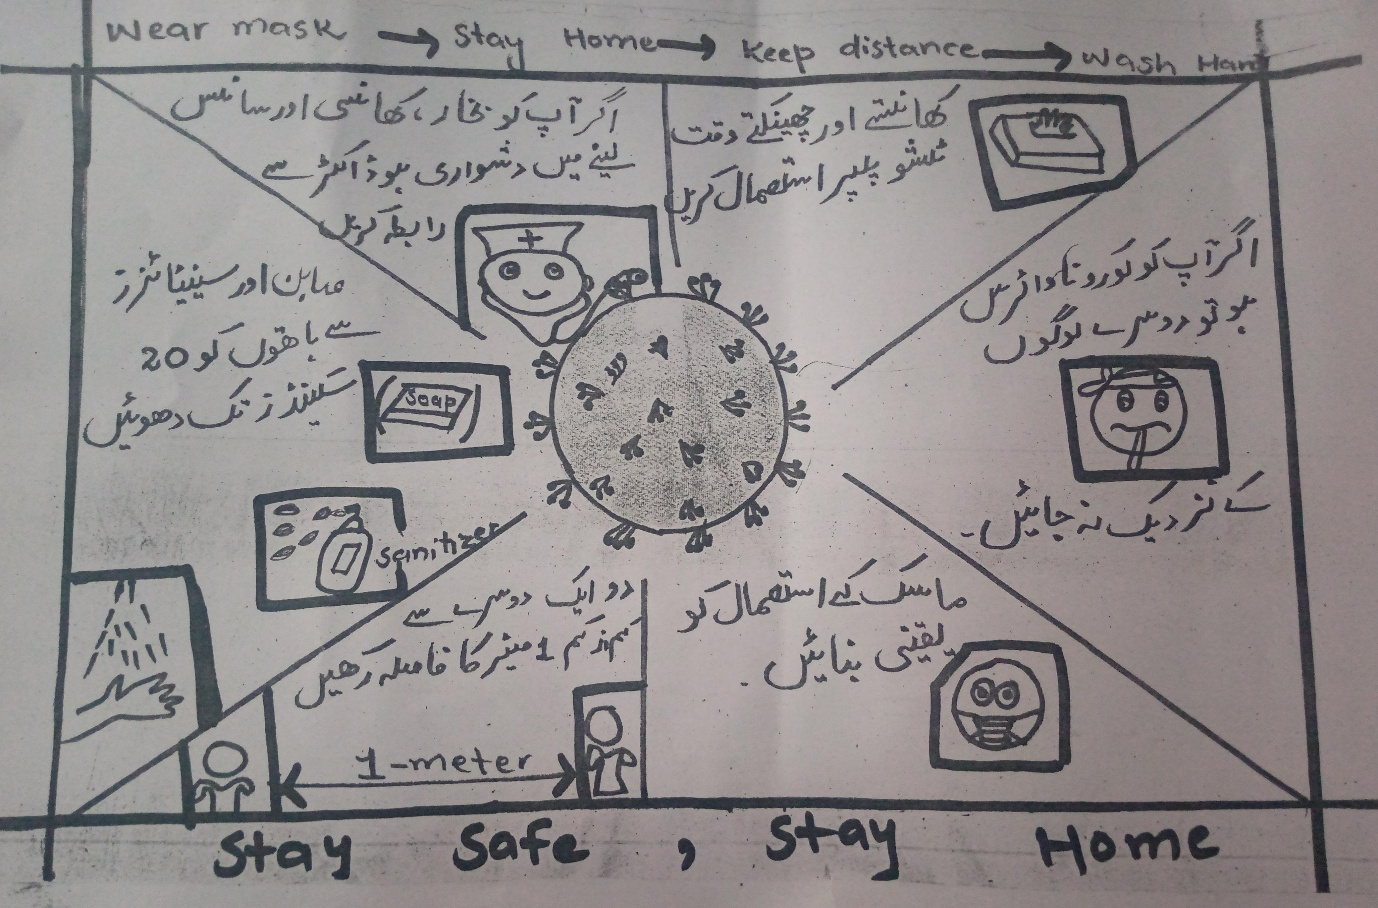 Wear mask → Stay Home → Keep distance → Wash Han
اگر آپ کو بخار، کھانسی اور سانس
لینے میں دشواری ہو ڈاکٹر سے
رابطہ کریں
کھانستے اور چھینکتے وقت
ٹشو پیپر استعمال کریں
صابن اور سینیٹائزرز
سے ہاتھوں کو 20
سیکنڈز تک دھوئیں
Soap
sanitizer
اگر آپ کو کورونا وائرس
ہو تو دوسرے لوگوں
کے نزدیک نہ جائیں۔
دو ایک دوسرے سے
کم از کم 1 میٹر کا فاصلہ رکھیں
1-meter
ماسک کے استعمال کو
یقینی بنائیں۔
Stay Safe, Stay Home